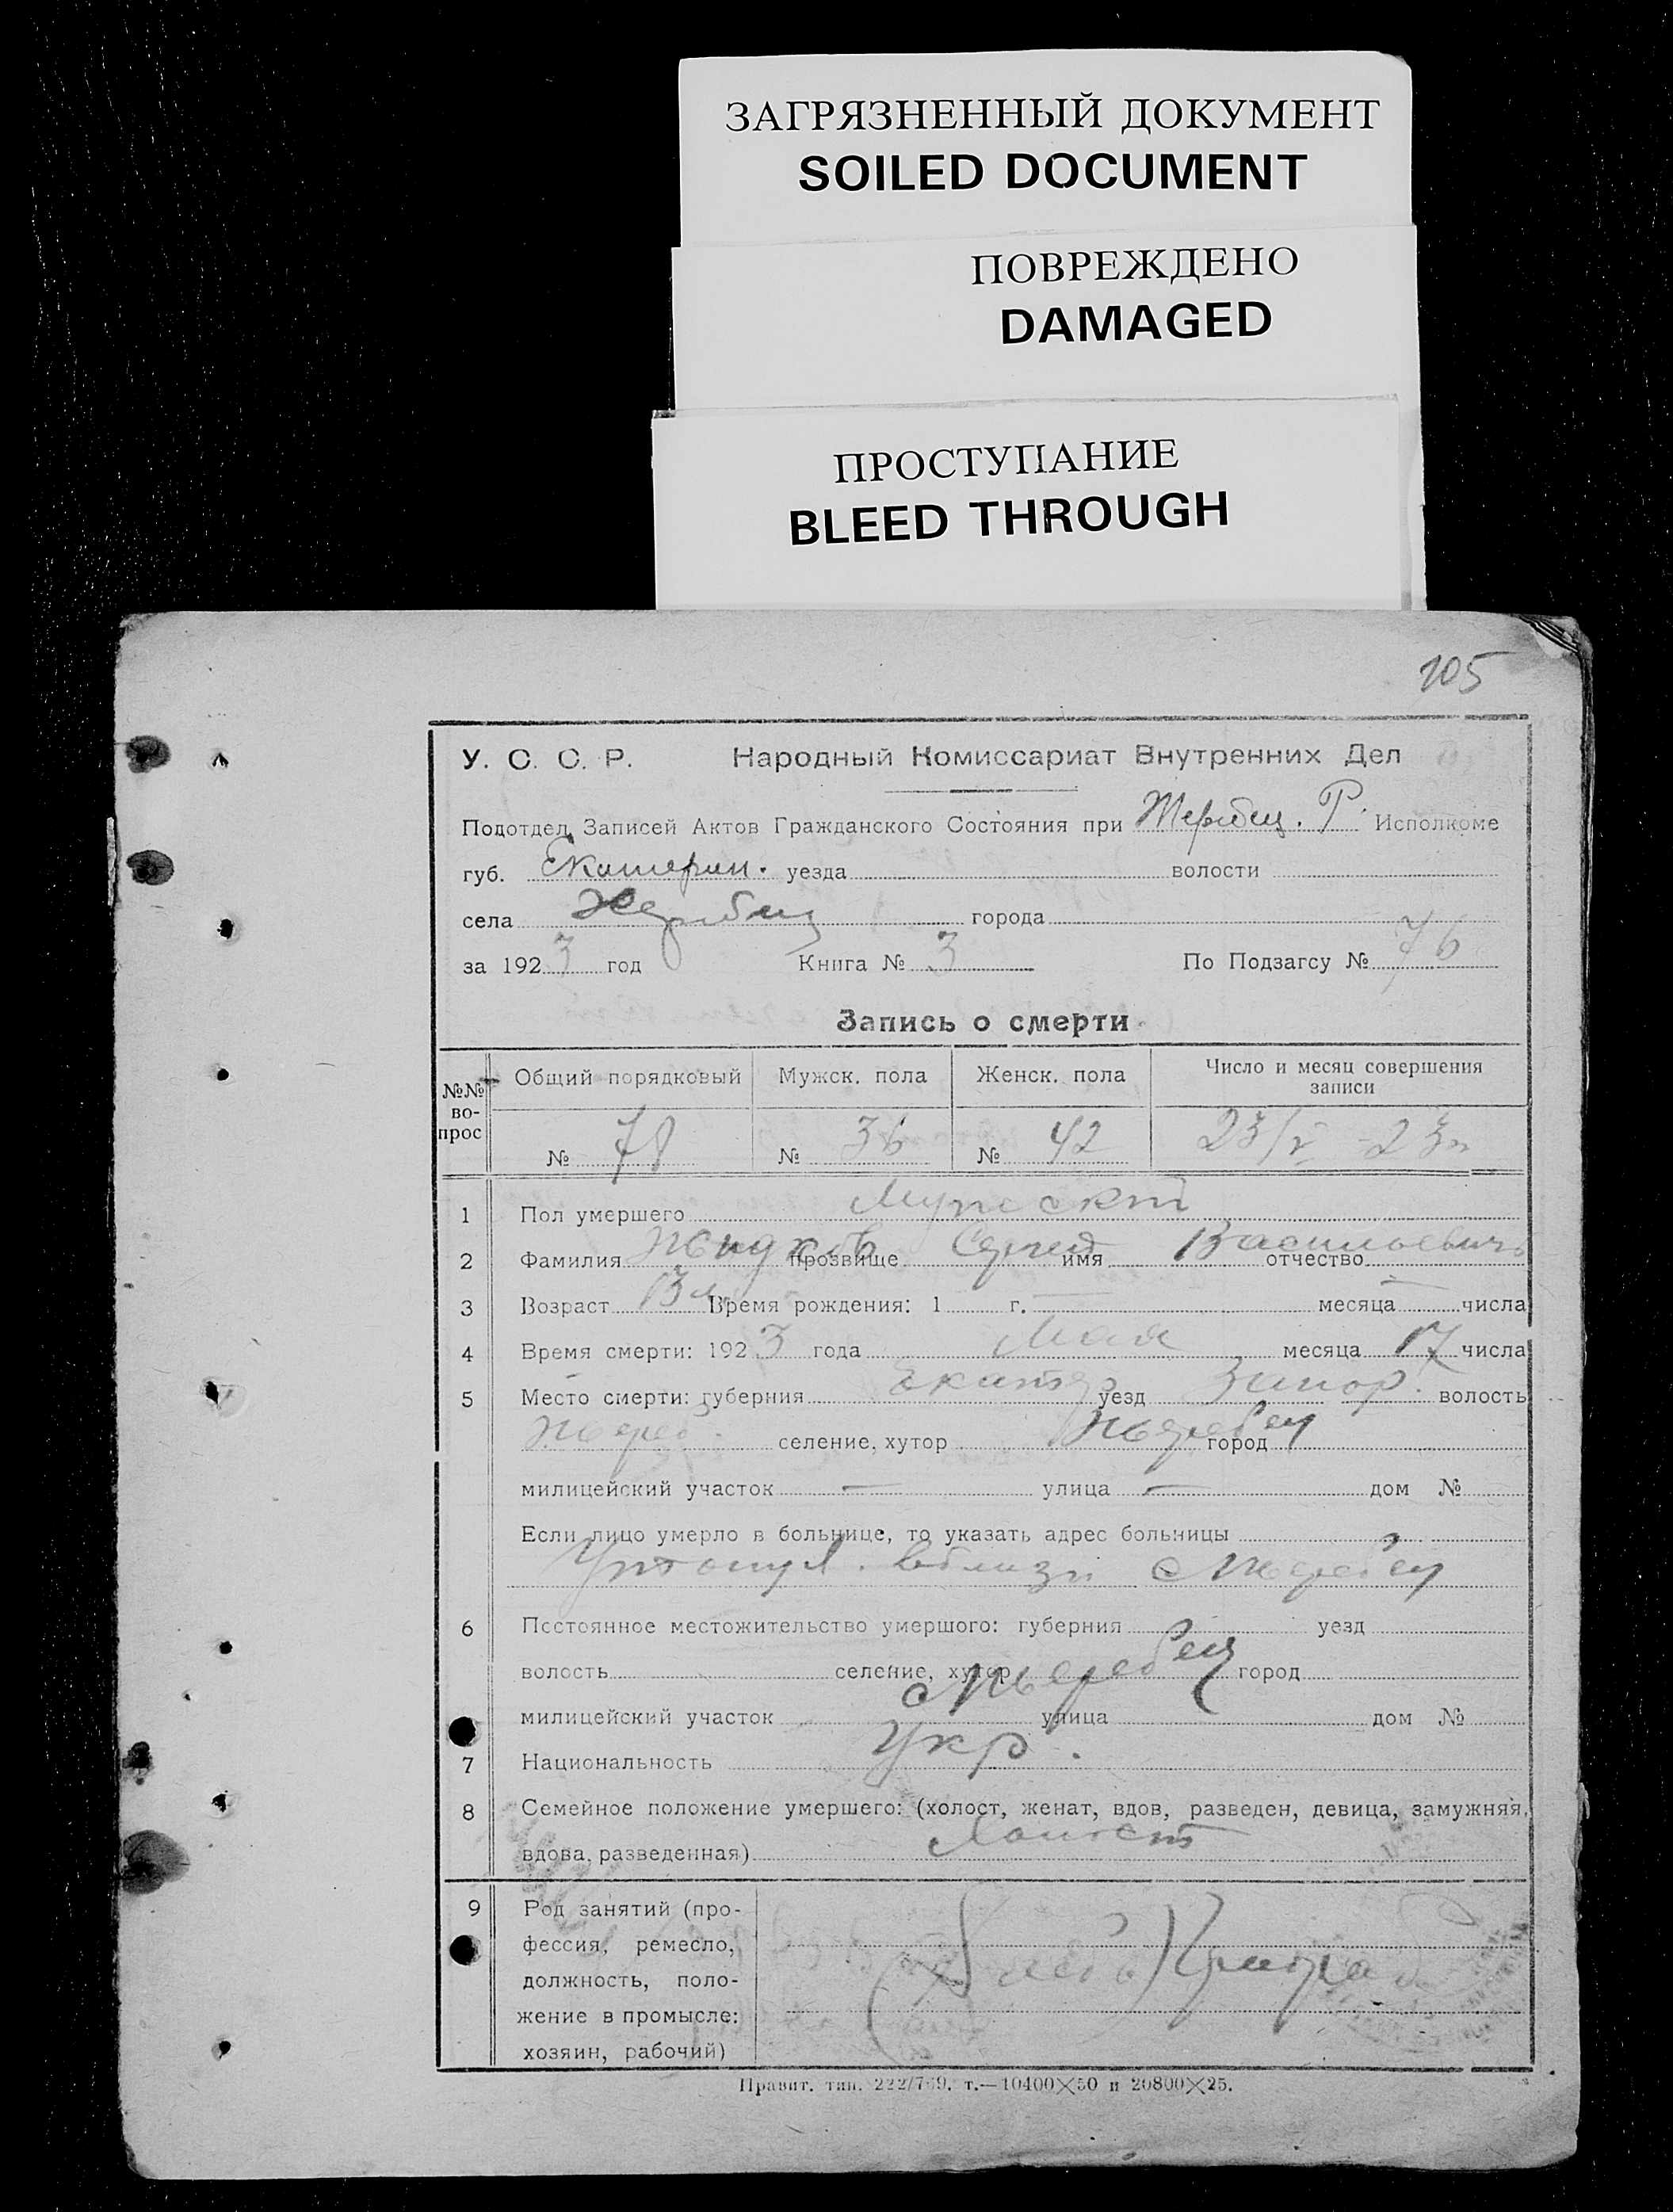 ЗАГРЯЗНЕННЫЙ ДОКУМЕНТ
SOILED DOCUMENT
ПОВРЕЖДЕНО
DAMAGED
ПРОСТУПАНИЕ
BLEED THROUGH
105
У. С. С. Р. Народный Комиссариат Внутренних Дел
Подотдел Записей Актов Гражданского Состояния при Жеребец. Р. Исполкоме
губ. Екатерин. уезда волости
села Жеребец города
за 1923 год Книга № 3 По Подзагсу № 76
Запись о смерти
№№ вопрос Общий порядковый Мужск. пола Женск. пола Число и месяц совершения записи
№ 78 № 36 № 42 23/V - 23 г.
1 Пол умершего Мужской
2 Фамилия Жидков прозвище Сергей имя Васильевич отчество
3 Возраст 13 л. Время рождения: 1 г. — месяца — числа
4 Время смерти: 1923 года Мая месяца 17 числа
5 Место смерти: губерния Екатер уезд Запор. волость
Жереб. селение, хутор Жеребец город
милицейский участок — улица — дом №
Если лицо умерло в больнице, то указать адрес больницы
Утонул вблизи с Жеребец
6 Постоянное местожительство умершого: губерния уезд
волость селение, хутор с Жеребец город
милицейский участок улица дом №
7 Национальность Укр.
8 Семейное положение умершего: (холост, женат, вдов, разведен, девица, замужняя,
вдова, разведенная) Холост
9 Род занятий (про-
фессия, ремесло,
должность, поло-
жение в промысле:
хозяин, рабочий)
Правит. тип. 222/769. т.—10400×50 и 20800×25.